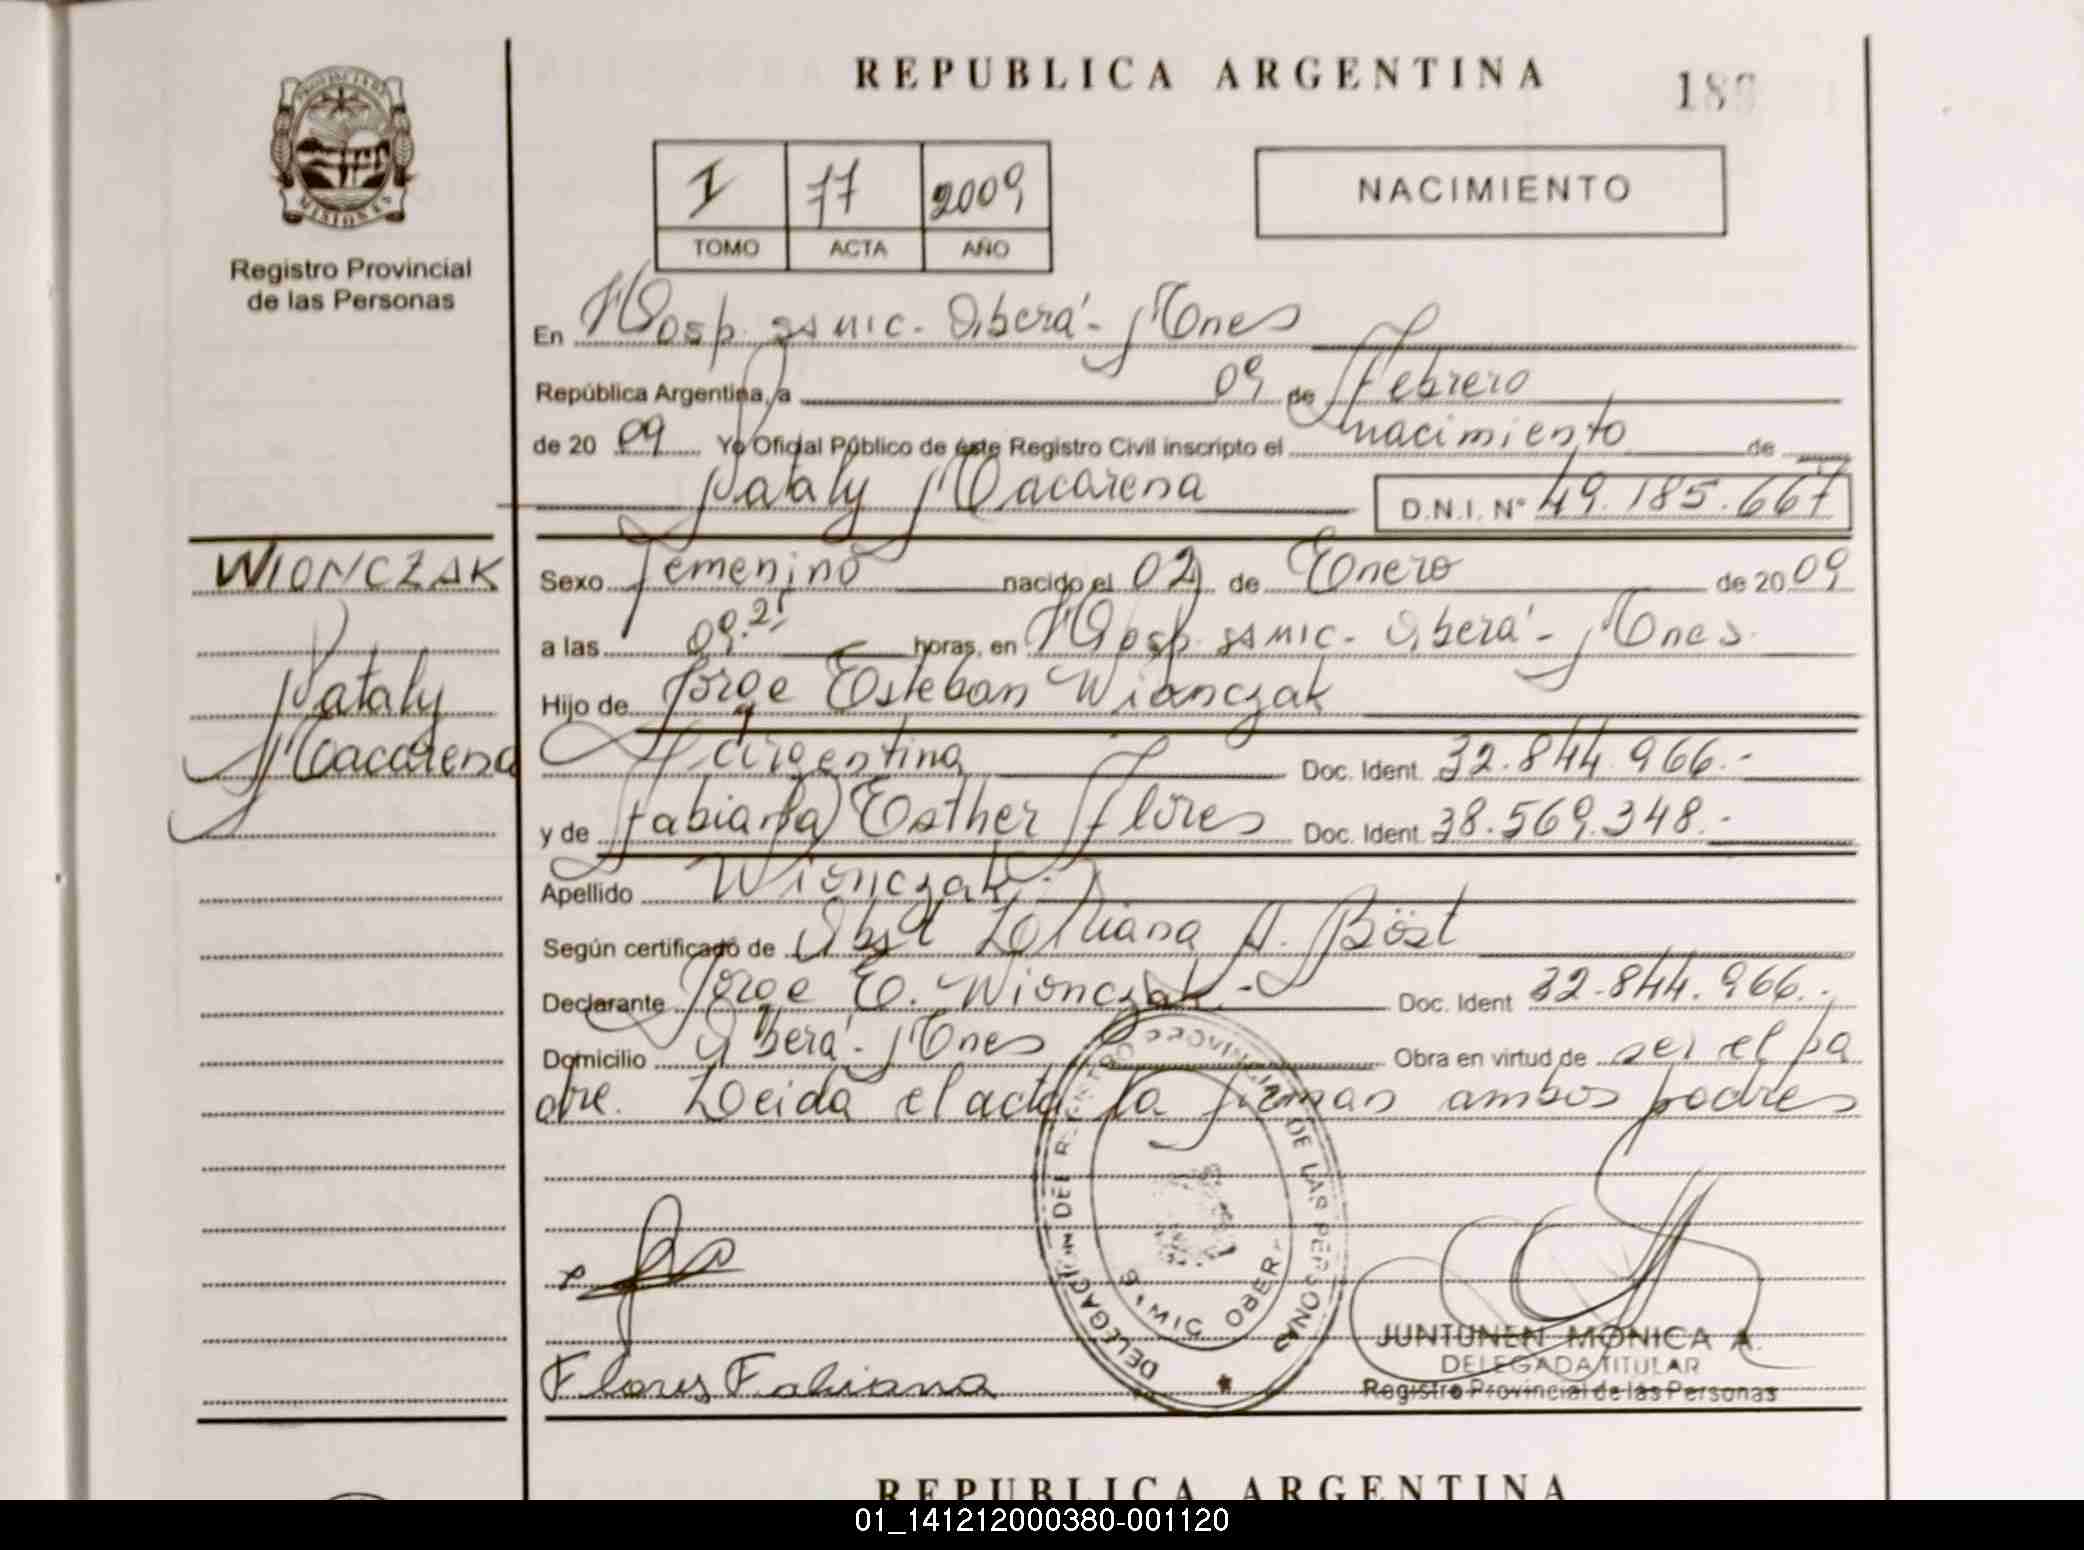 REPUBLICA ARGENTINA
PROVINCIA DE
MISIONES
Registro Provincial
de las Personas
I 77 2009
TOMO ACTA AÑO
NACIMIENTO
En Hosp. SAMIC - Oberá - Mnes
República Argentina, a 09 de Febrero
de 20 09 Yo Oficial Público de éste Registro Civil inscripto el nacimiento de
Nataly Macarena D.N.I. N° 49.185.667
WIONCZAK
Nataly
Macarena
Sexo Femenino nacido el 02 de Enero de 20 09
a las 09.25 horas, en Hosp. SAMIC - Oberá - Mnes.
Hijo de Jorge Esteban Wionczak
Argentina Doc. Ident. 32.844.966.-
y de Fabiana Esther Flores Doc. Ident. 38.569.348.-
Apellido Wionczak.-
Según certificado de Obst. Liliana A. Böst
Declarante Jorge E. Wionczak.- Doc. Ident 32.844.966.-
Domicilio Oberá - Mnes Obra en virtud de ser el pa
dre. Leida el acta la firman ambos padres
DELEGACION DEL REGISTRO PROVINCIAL DE LAS PERSONAS
OBERA
Flores Fabiana
JUNTUNEN MONICA A.
DELEGADA TITULAR
Registro Provincial de las Personas
REPUBLICA ARGENTINA
01_141212000380-001120